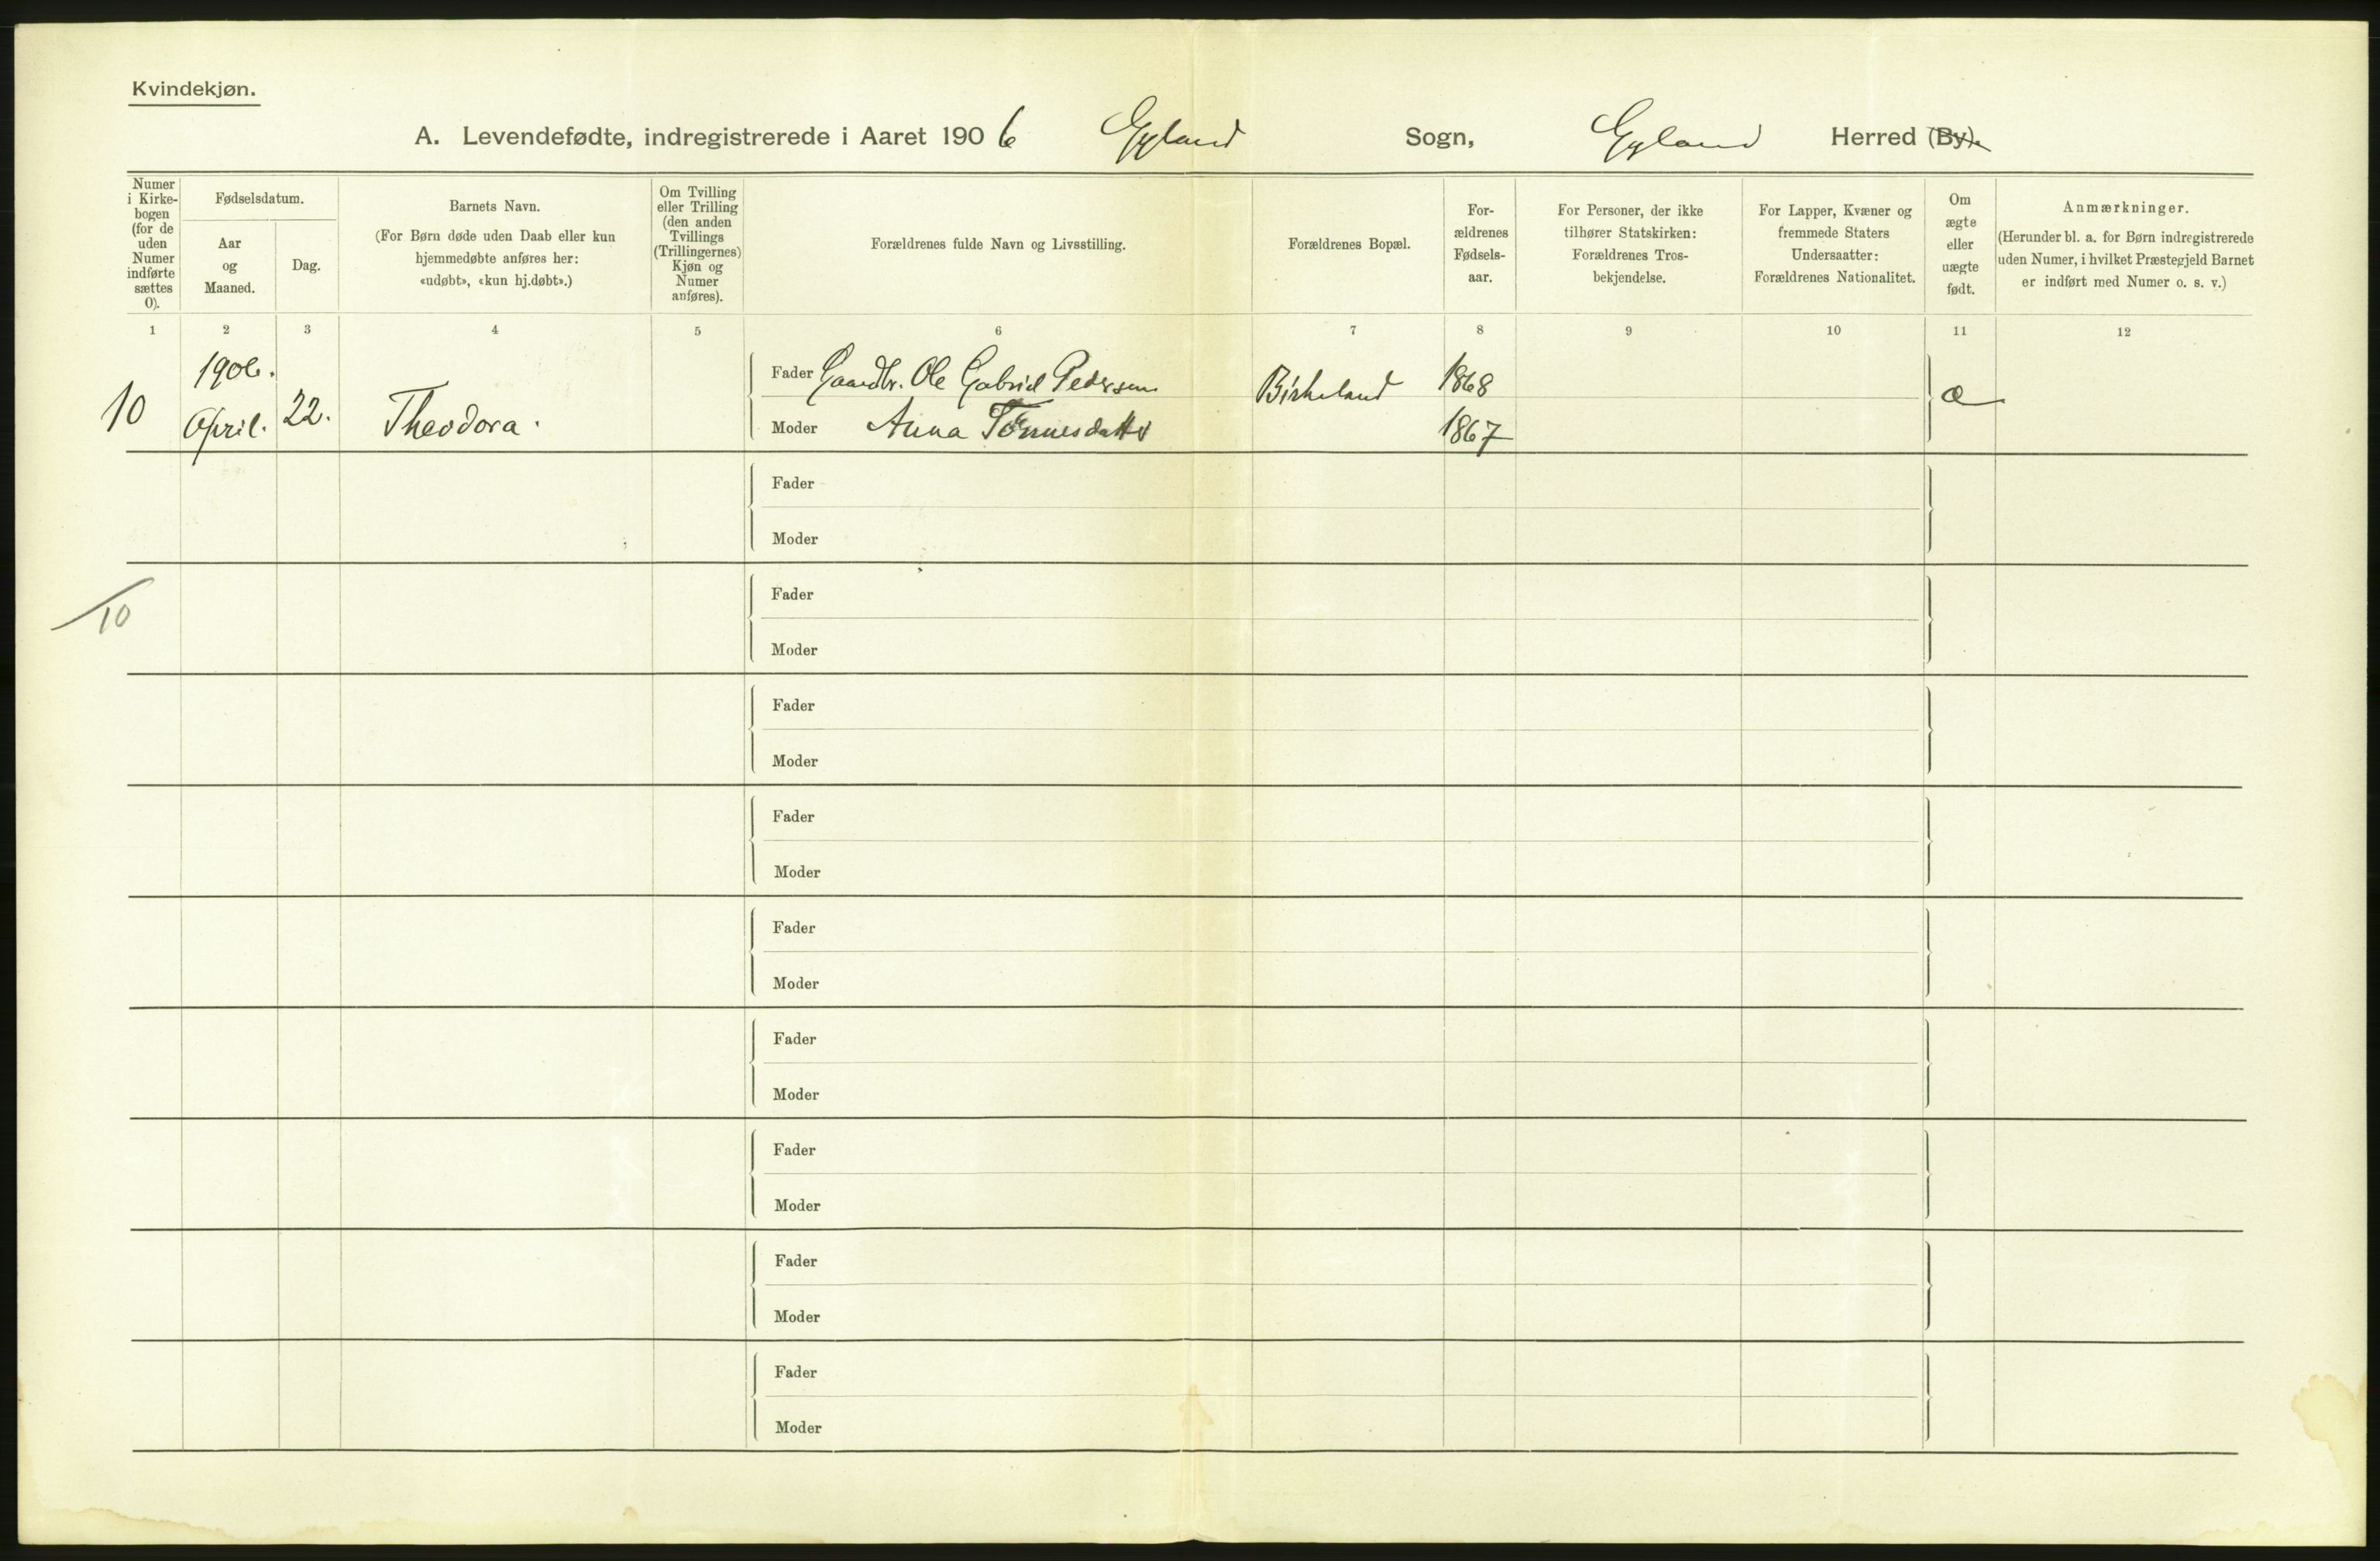 Kvindekjøn.
A. Levendefødte, indregistrerede i Aaret 1906 Gyland Sogn, Gyland Herred (By).
Numer
i Kirke-
bogen
(for de
uden
Numer
indførte
sættes
0).
Fødselsdatum.
Aar
og
Maaned.
Dag.
Barnets Navn.
(For Børn døde uden Daab eller kun
hjemmedøbte anføres her:
«udøbt», «kun hj.døbt».)
Om Tvilling
eller Trilling
(den anden
Tvillings
(Trillingernes)
Kjøn og
Numer
anføres).
Forældrenes fulde Navn og Livsstilling.
Forældrenes Bopæl.
For-
ældrenes
Fødsels-
aar.
For Personer, der ikke
tilhører Statskirken:
Forældrenes Tros-
bekjendelse.
For Lapper, Kvæner og
fremmede Staters
Undersaatter:
Forældrenes Nationalitet.
Om
ægte
eller
uægte
født.
Anmærkninger.
(Herunder bl. a. for Børn indregistrerede
uden Numer, i hvilket Præstegjeld Barnet
er indført med Numer o. s. v.)
1 2 3 4 5 6 7 8 9 10 11 12
10
1906.
April.
22.
Theodora.
Fader Gaardbr. Ole Gabriel Pedersen
Moder Anna Tønnesdatter
Birkeland
1868
1867
æ
Fader
Moder
10
Fader
Moder
Fader
Moder
Fader
Moder
Fader
Moder
Fader
Moder
Fader
Moder
Fader
Moder
Fader
Moder